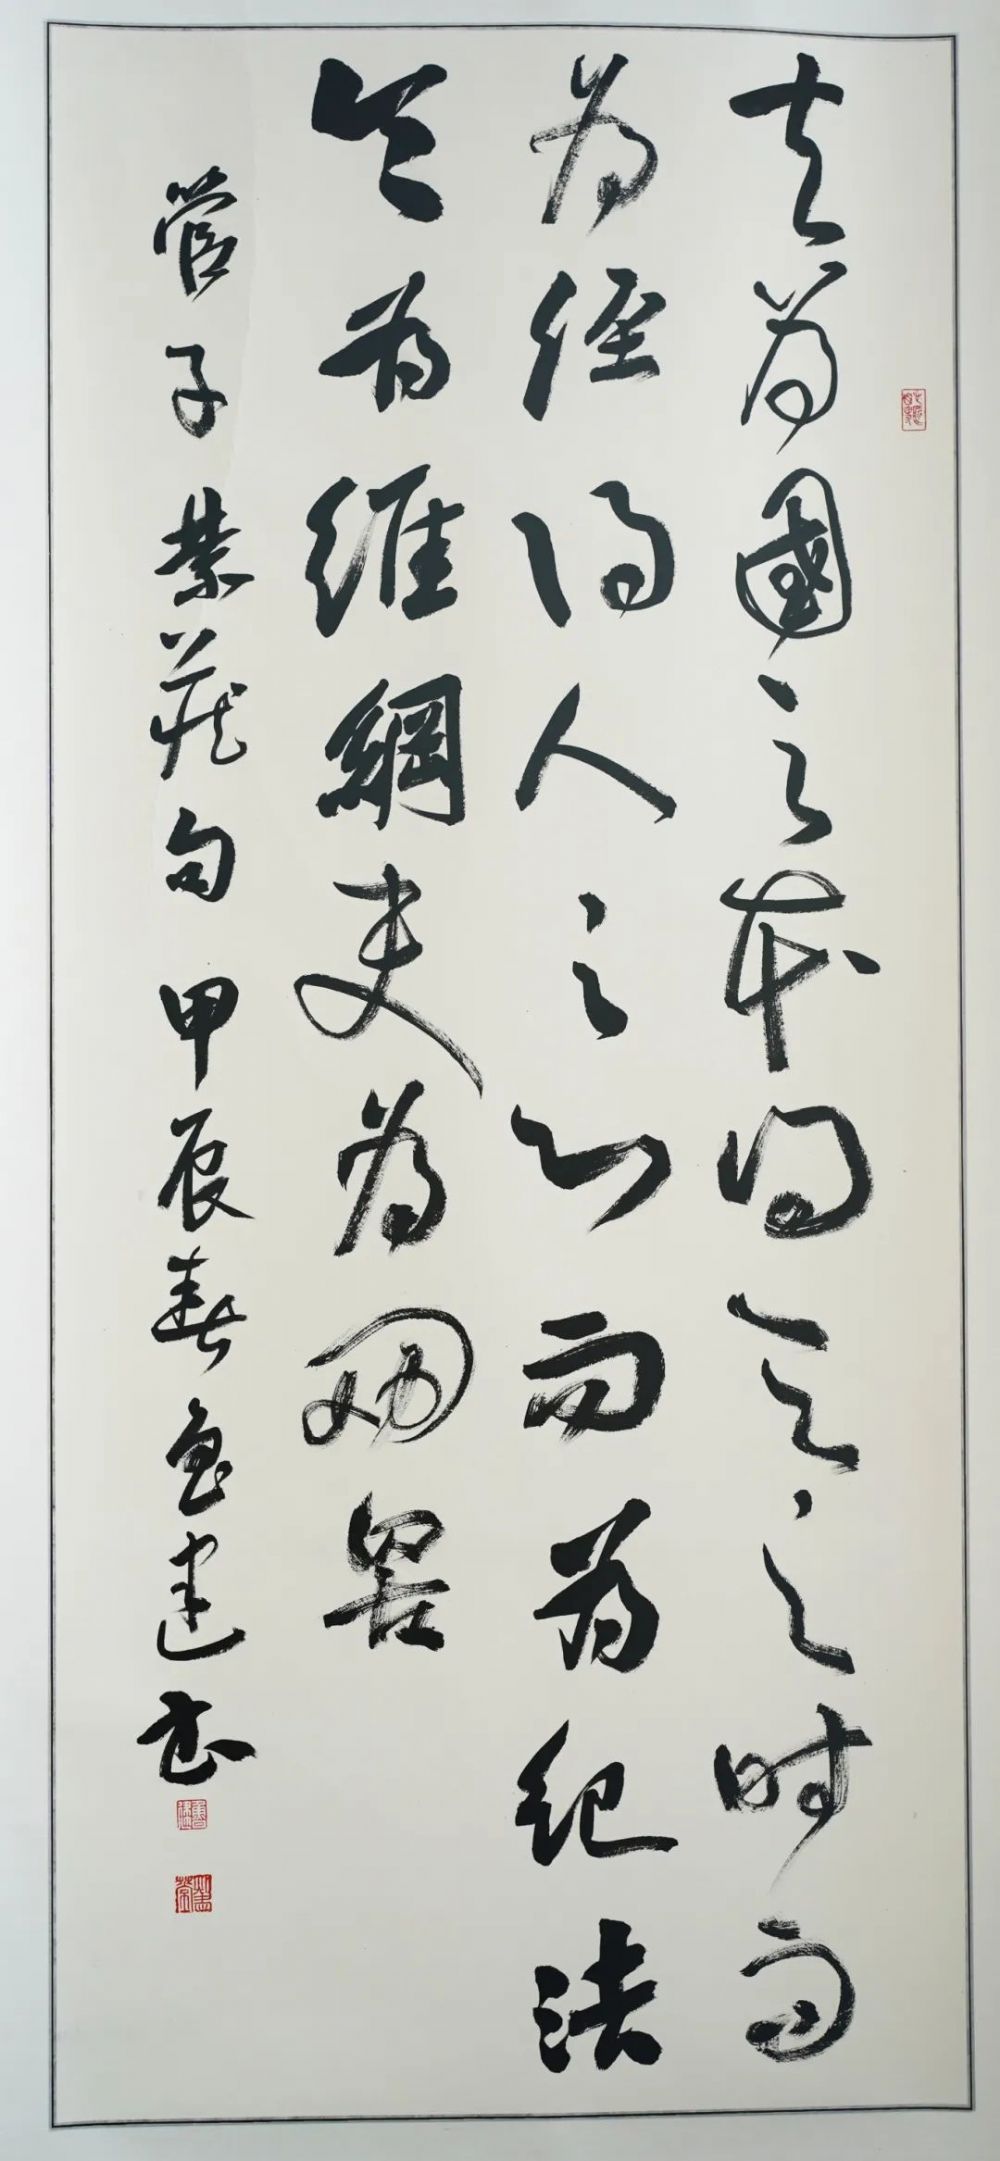 夫為國之本得天之時而
為經得人之心而為紀法
令為維綱吏為網罟
管子禁藏句甲辰春魯建書